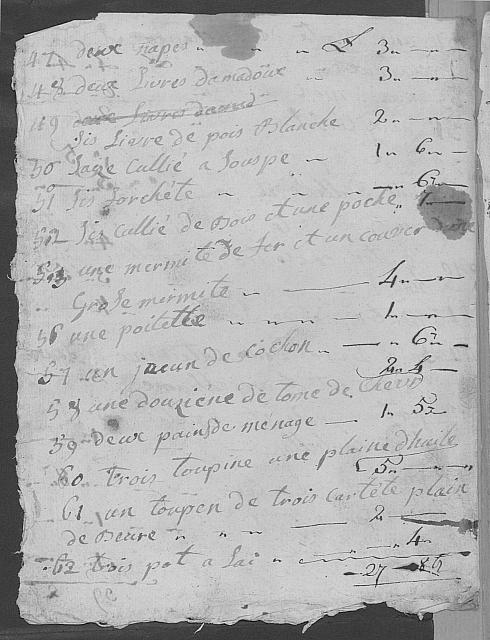 47 deux napes " " " L 3" — " —
48 deux Livres damadoux " 3" — " —
49
Sis Livre de pois Blanche 2" — " —
50 Sage cullié a Souspe " — 1" 6" —
51 Sis forchéte " " " — " 6" —
52 Sis cullié de Bois et une poche " 1 —
53 une mermite de fer et un couver
" Grose mermite " — 4" — " —
56 une poilette " " " " — 1" — " —
57 un jneun de cochon " — " 6" —
58 une douziéne de tome de chevr 2" 4 —
59 deux pains de ménage — 1" 5"
60 trois toupine une plaine dhuile
L 5" — " —
61 un toupen de trois cartéte plain
de Beure " " " — 2 —
62 trois pot a lai " — " 4"
27